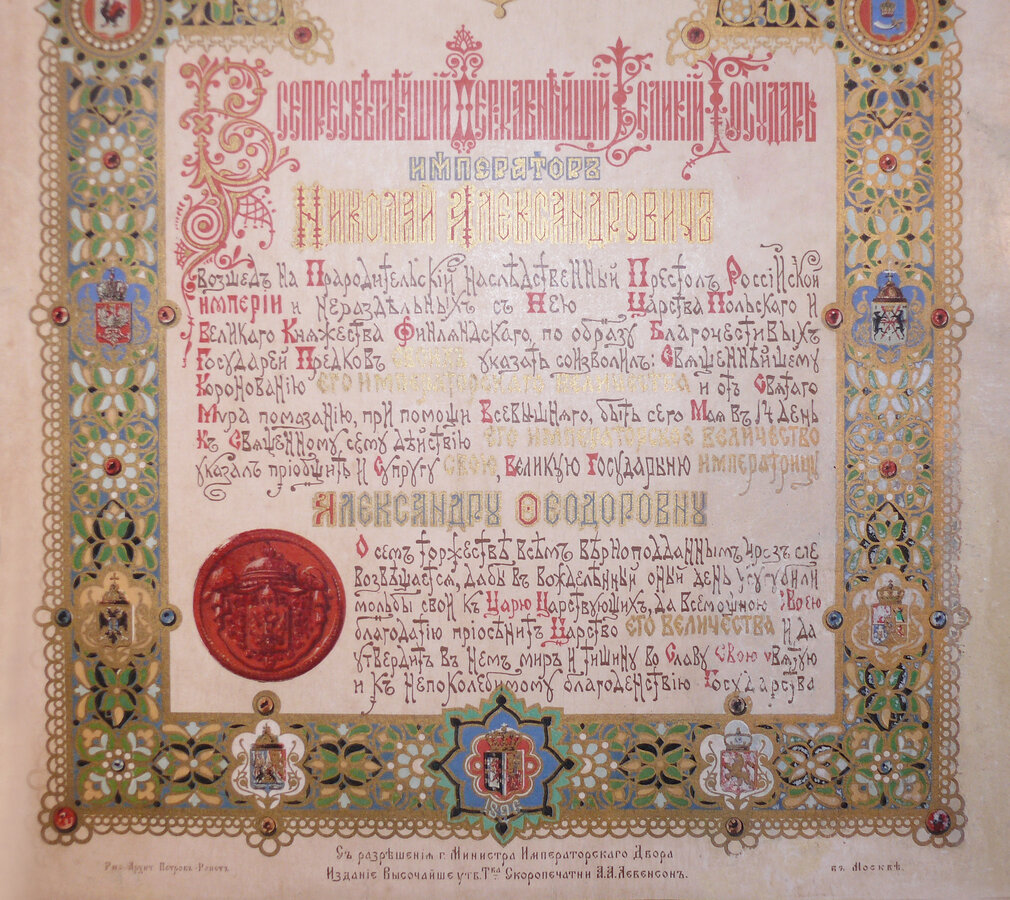 Всепресвѣтлѣйшій Державнѣйшій Великій Государь
ИМПЕРАТОРЪ
НИКОЛАЙ АЛЕКСАНДРОВИЧЪ
возшедъ на Прародительскій наслѣдственный Престолъ Россійской
империи и нераздѣльныхъ съ Нею Царства Польскаго и
Великаго Княжества Финляндскаго, по образу Благочестивыхъ
Государей Предковъ своихъ указать соизволилъ: Священнѣйшему
Коронованію его императорскаго величества и отъ Святаго
Мѵра помазанію, при помощи Всевышняго, быть сего Мая въ 14 день
Къ Священному сему дѣйствію его императорское величество
указалъ пріобщить и Супругу свою, Великую Государыню императрицу
АЛЕКСАНДРУ ѲЕОДОРОВНУ
О семъ торжествѣ всѣмъ вѣрноподданнымъ чрезъ сіе
возвѣщается, дабы въ вождѣлѣнный оный день усугубили
мольбы свои къ Царю Царствующихъ, да всемощною Своею
благодатію пріосѣнитъ Царство его величества и да
утвердитъ въ немъ миръ и тишину во Славу Свою святую
и къ непоколебимому благоденствію Государства
1896
Съ разрѣшенія г. Министра Императорскаго Двора
Рис. Архит Петровъ-Ропетъ
Изданіе Высочайше утв. Тва Скоропечатни А.А.Левенсонъ.
въ Москвѣ.